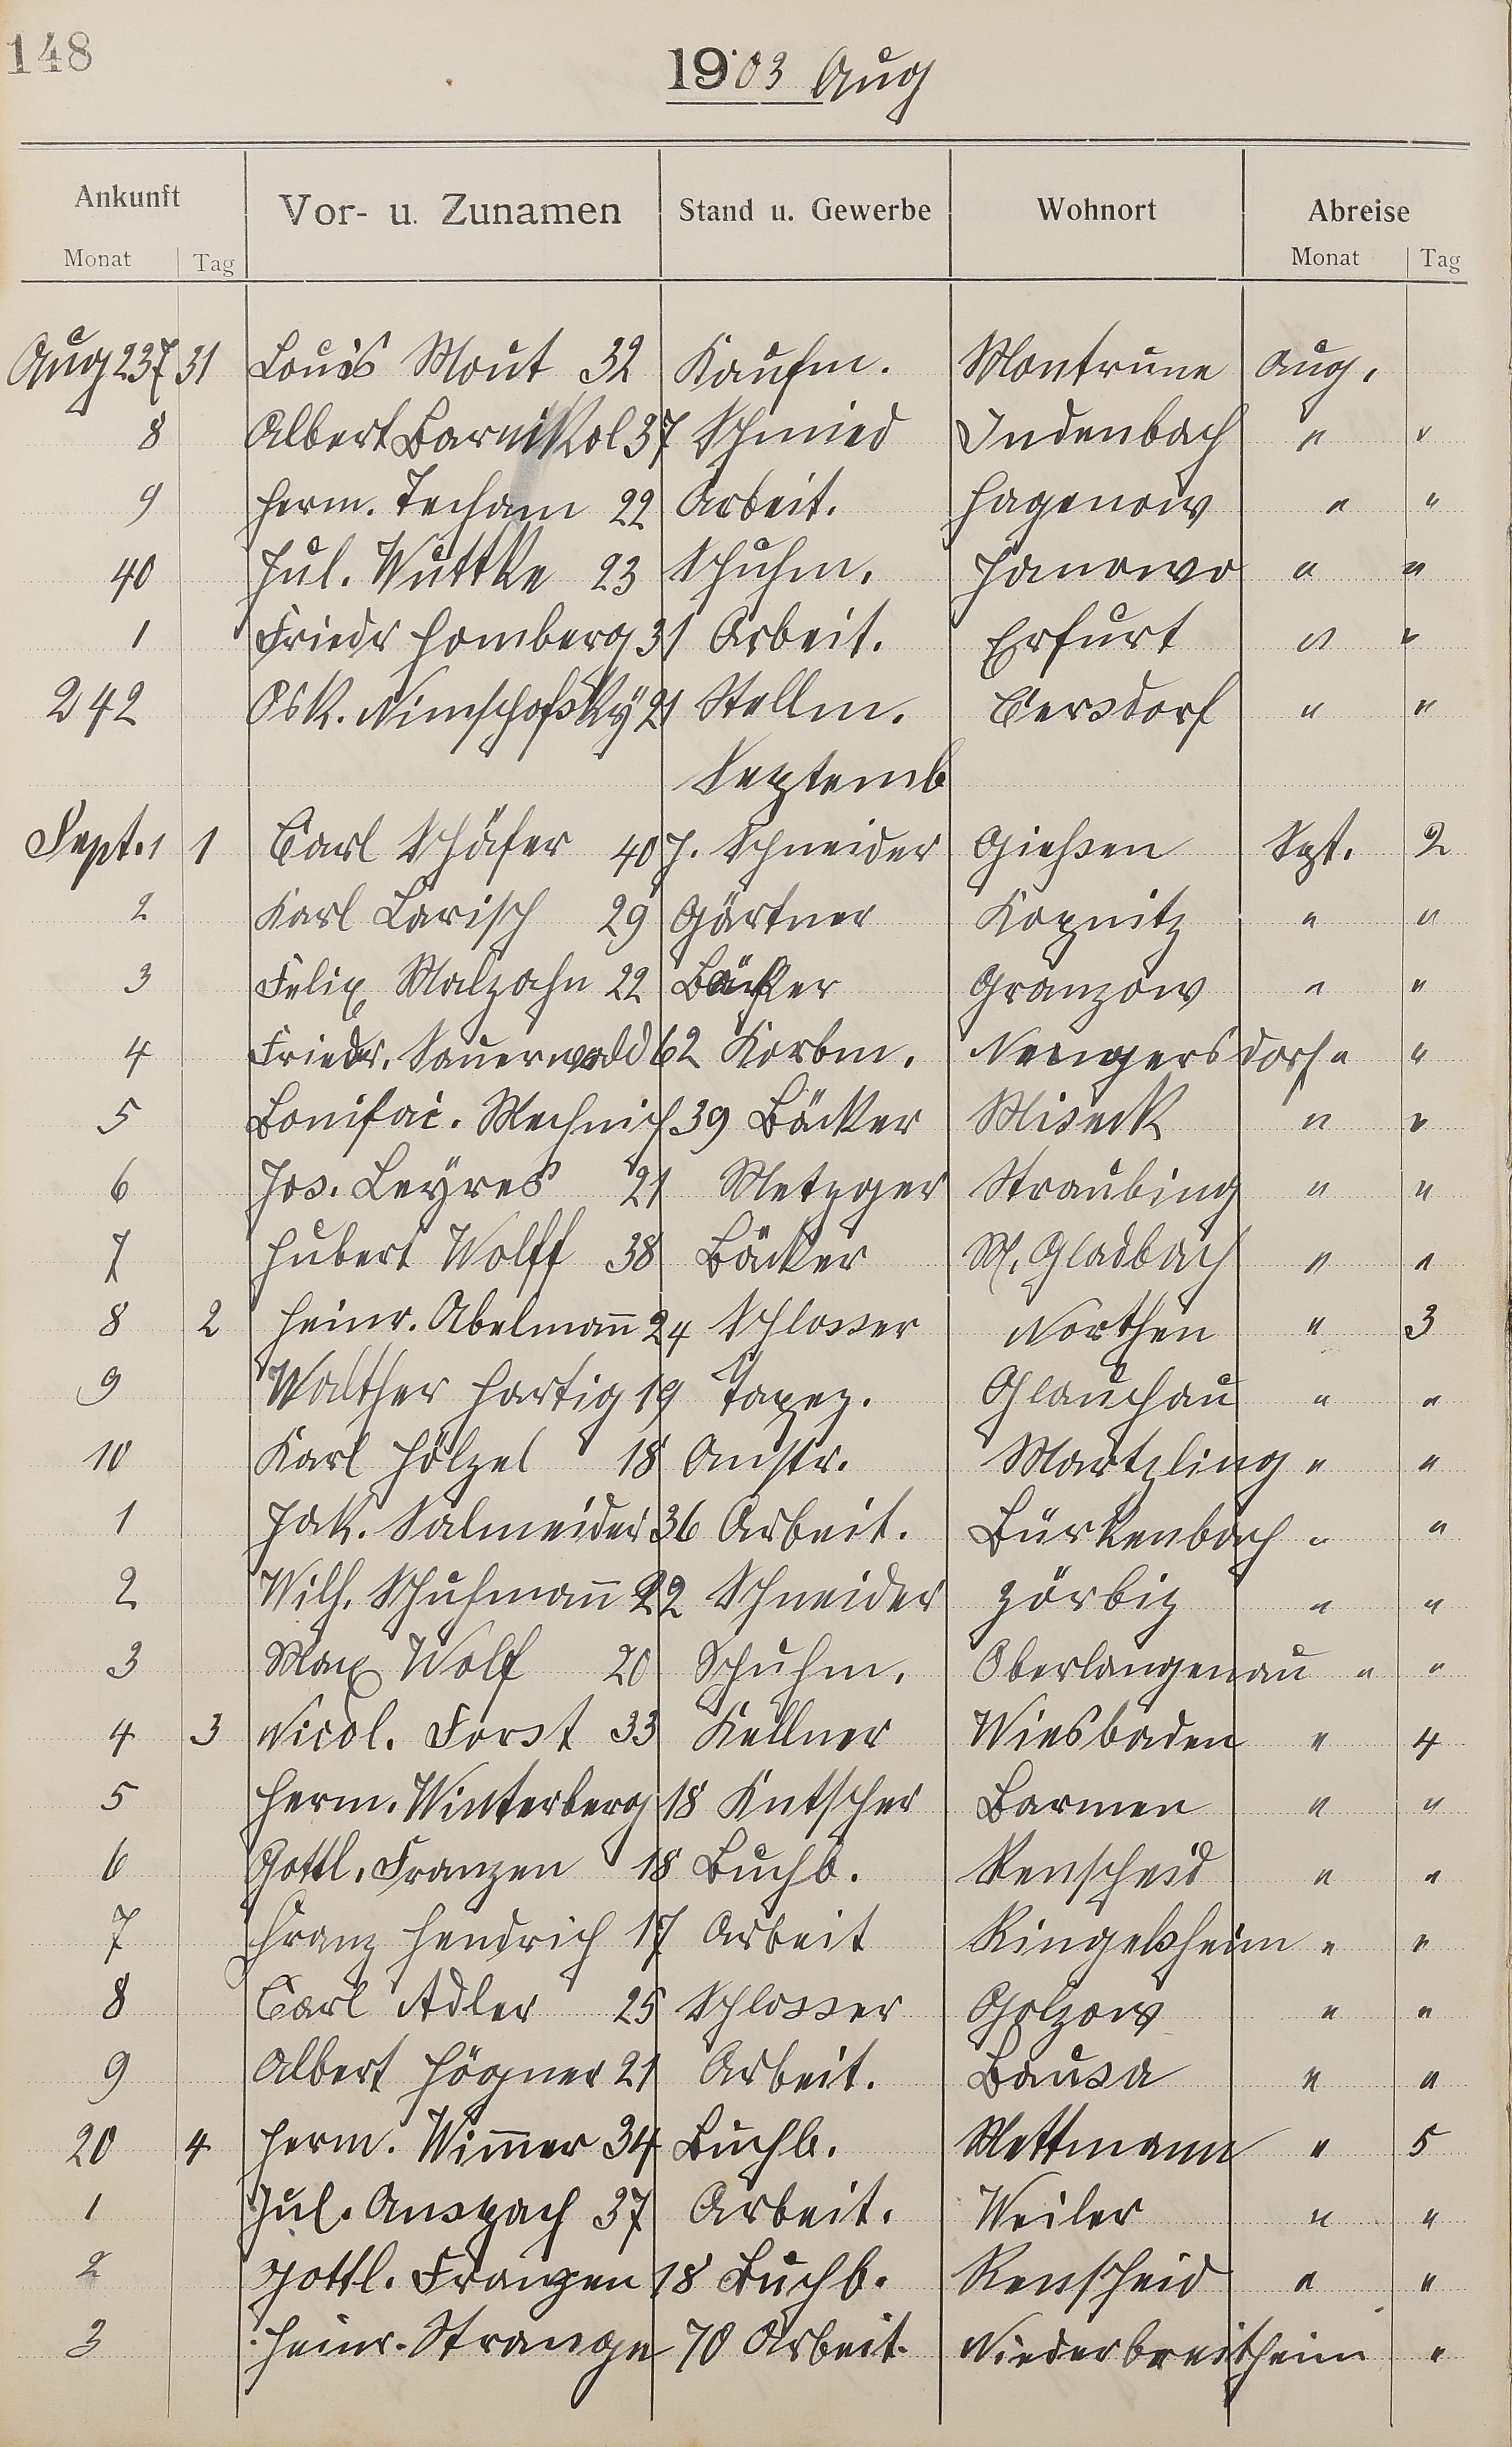 148
1903 Aug
Ankunft Vor- u. Zunamen Stand u. Gewerbe Wohnort Abreise
Monat Tag Monat Tag
Aug 237 31 Louis Mout 32 Kaufm. Montrune Aug.
8 Albert Barnikol 37 Schmied Indenbach " "
9 Herm. Techam 22 Arbeit. Hagenow " "
40 Jul. Wuttke 23 Schuhm. Hanowo " "
1 Friedr Homberg 31 Arbeit. Erfurt " "
242 Osk. Nimschofsky 21 Stellm. Cersdorf " "
Septemb
Sept. 1 1 Carl Schäfer 40 J. Schneider Giehsen Spt. 2
2 Karl Larisch 29 Gärtner Kopnitz " "
3 Felix Malzahn 22 Bäcker Granzow " "
4 Friedr. Sauerwald 62 Korbm. Neugersdorf " "
5 Bonifac. Mechnich 39 Bäcker Miseck " "
6 Jos. Leyres 21 Metzger Straubing " "
7 Hubert Wolff 38 Bäcker M. Gladbach " "
8 2 Heinr. Abelmann̅ 24 Schlosser Northen " 3
9 Walther Hartig 19 Tapez. Glauchau " "
10 Karl Hölzel 18 Anstr. Martzling " "
1 Jak. Salmeider 36 Arbeit. Bürkenbach " "
2 Wilh. Schuhman̅ 22 Schneider Zörbig " "
3 Max Wolf 20 Schuhm. Oberlangenau " "
4 3 Nicol. Forst 33 Kellner Wiesbaden " 4
5 Herm. Winterberg 18 Kutscher Barmen " "
6 Gottl. Franzen 18 Buchb. Renscheid " "
7 Franz Hendrich 17 Arbeit Ringelsheim " "
8 Carl Adler 25 Schlosser Golzow " "
9 Albert Högner 21 Arbeit. Bausa " "
20 4 Herm. Wim̅er 34 Buchb. Mettmann " 5
1 Jul. Anspach 37 Arbeit. Weiler " "
2 Gottl. Franzen 18 Buchb. Renscheid " "
3 Heinr. Strange 70 Arbeit. Niederbreitheim "